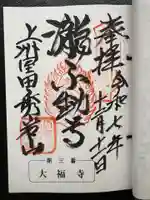 奉拝
令和七年
十二月十一日
瀧不動尊
上州室田形岩山
第三番
大福寺